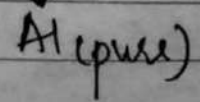 Al (pure)